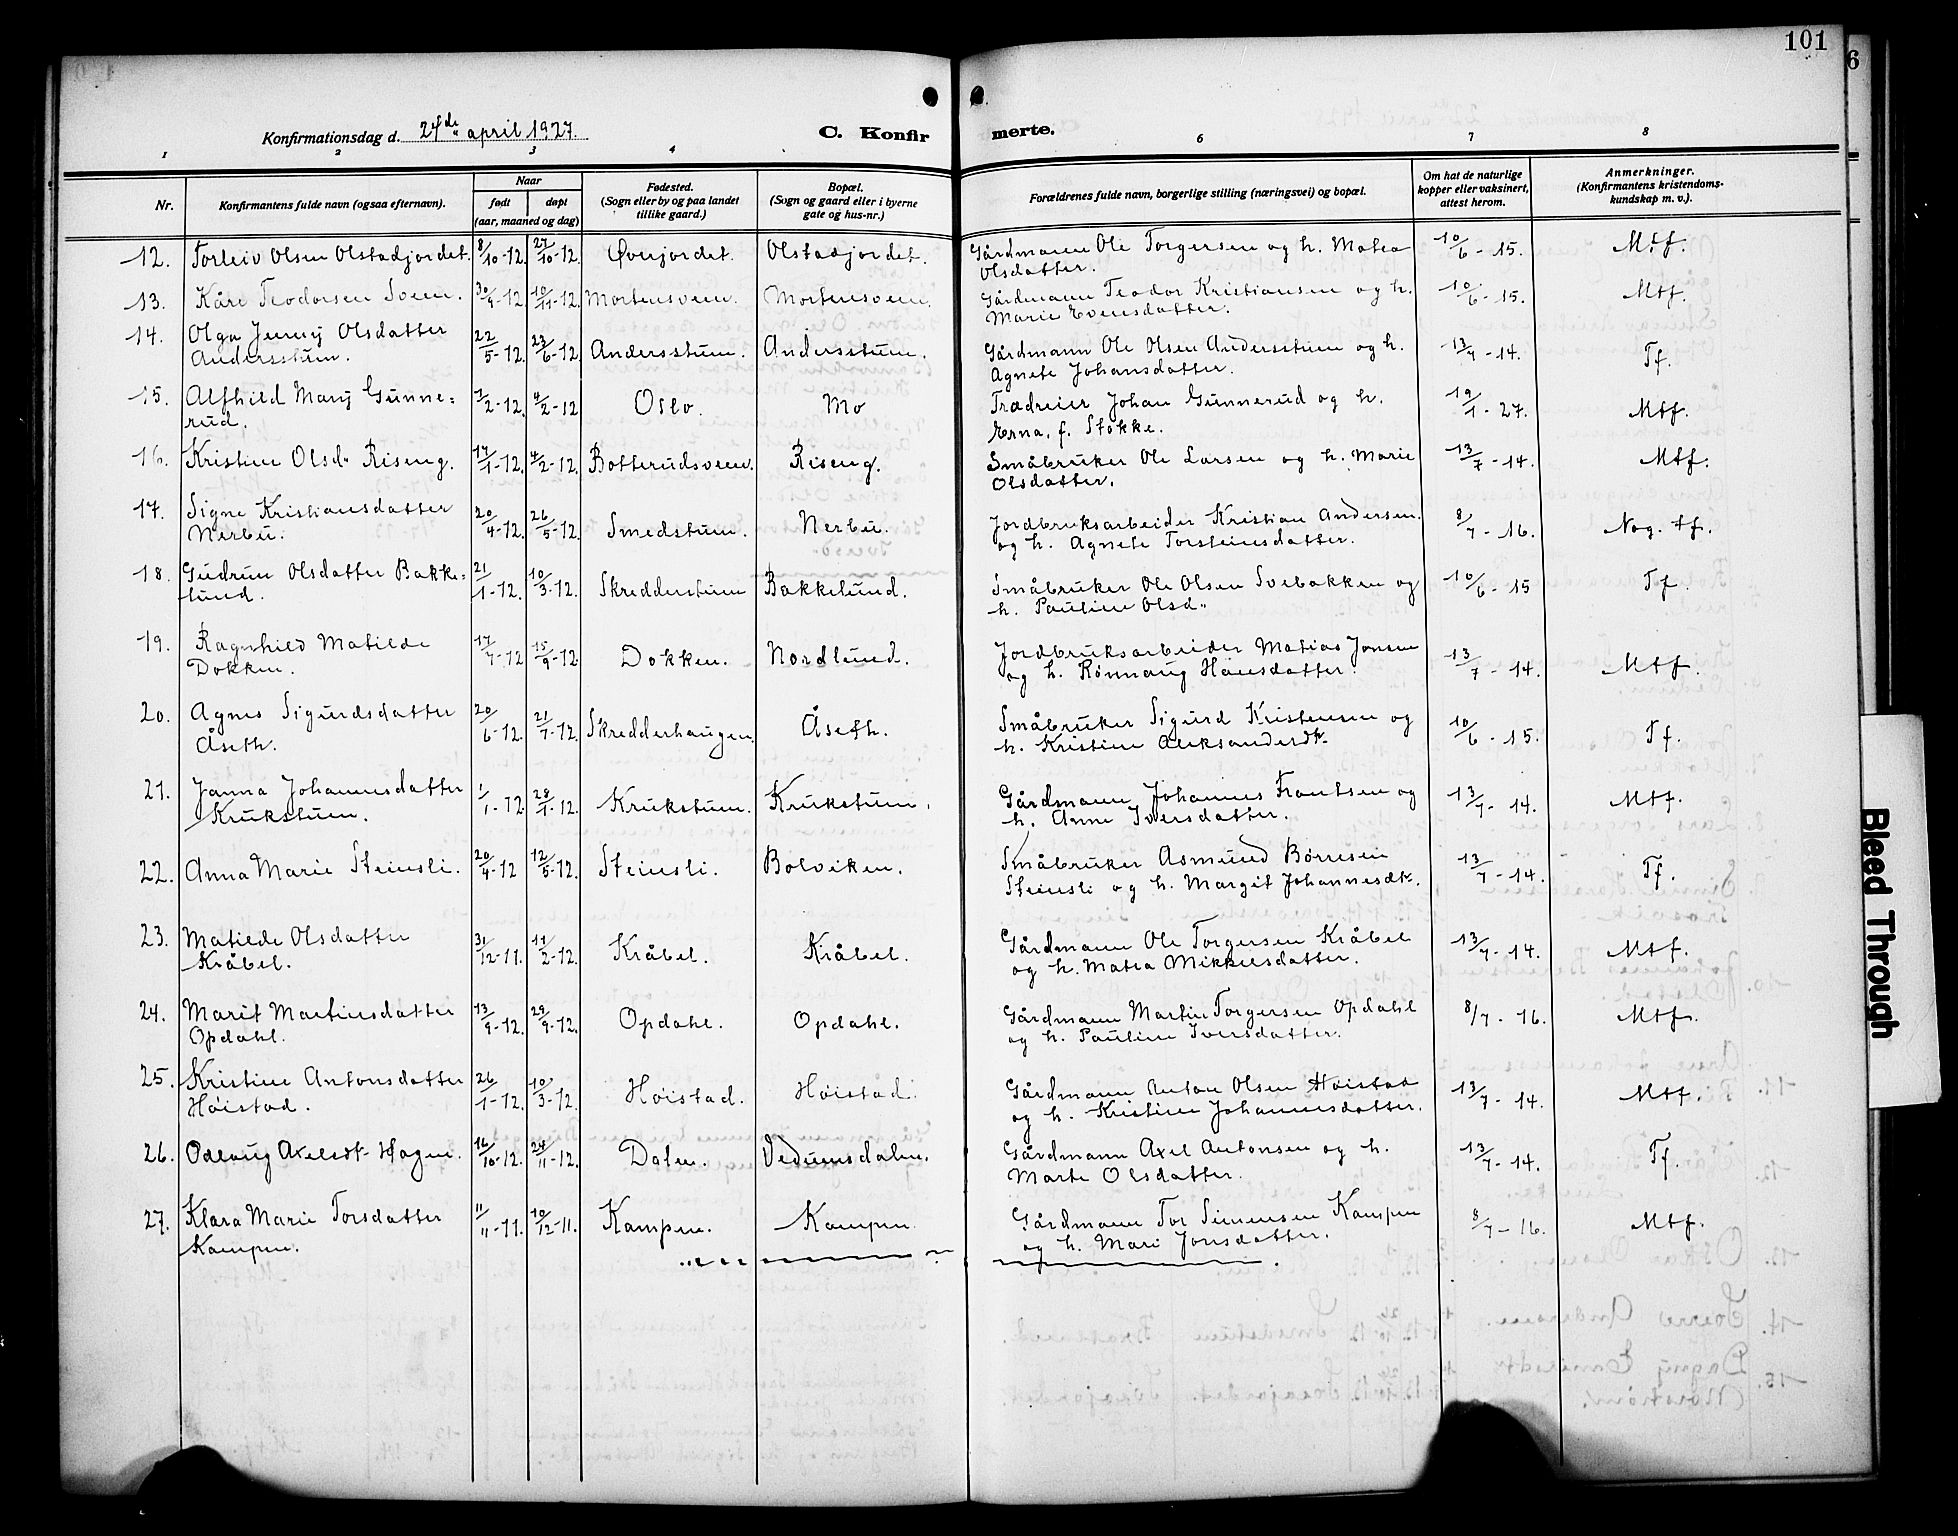 101
6
Konfirmationsdag d. 24de april 1927.
C. Konfir
merte.
1 2 3 4 6 7 8
Nr.
Konfirmantens fulde navn (ogsaa efternavn).
Naar
født døpt
(aar, maaned og dag)
Fødested.
(Sogn eller by og paa landet
tillike gaard.)
Bopæl.
(Sogn og gaard eller i byerne
gate og hus-nr.)
Forældrenes fulde navn, borgerlige stilling (næringsvei) og bopæl.
Om hat de naturlige
kopper eller vaksinert,
attest herom.
Anmerkninger.
(Konfirmantens kristendoms-
kundskap m. v.).
12. Torleiv Olsen Olstadjordet. 8/10-12. 27/10-12. Øverjordet. Olstadjordet. Gårdmann Ole Torgersen og h. Matea 10/6-15. Mtf.
Olsdatter.
13. Kåre Teodorsen Sveen. 30/9-12 10/11-12. Mortensveen. Mortensveen. Gårdmann Teodor Kristiansen og h. 10/6-15. Mtf.
Marie Evensdatter.
14. Olga Jenny Olsdatter 22/5-12. 23/6-12 Andersstuen. Andersstuen. Gårdmann Ole Olsen Andersstuen og h. 13/7-14. Tf.
Andersstuen. Agnete Johansdatter.
15. Alfhild Mary Gunne= 3/2-12. 4/2-12 Oslo. Mo Trædreier Johan Gunnerud og h. 19/1-27. Mtf.
rud. Erna, f. Stokke.
16. Kristine Olsd" Riseng. 17/1-12. 4/2-12. Botterudsveen. Riseng. Småbruker Ole Larsen og h. Marie 13/7-14. Mtf.
Olsdatter.
17. Signe Kristiansdatter 20/4-12. 26/5-12. Smedstuen. Nerbu. Jordbruksarbeider Kristian Andersen 8/7-16. Nog. tf.
Nerbu. og h. Agnete Torsteinsdatter.
18. Gudrun Olsdatter Bakke= 21/1-12. 10/3-12. Skredderstuen Bakkelund. Småbruker Ole Olsen Svebakken og 10/6-15 Tf.
lund. h. Pauline Olsd"
19. Ragnhild Matilde 17/7-12 15/9-12 Dokken. Nordlund. Jordbruksarbeider Matias Jonsen 13/7-14. Mtf.
Dokken. og h. Rønnaug Hansdatter.
20. Agnes Sigurdsdatter 20/6-12. 21/7-12. Skredderhaugen. Åseth. Småbruker Sigurd Kristensen og 10/6-15. Tf.
Åseth. h. Kristine Aleksandersdt.
21. Janna Johannesdatter 1/1-12 28/1-12. Krukstuen. Krukstuen. Gårdmann Johannes Frantsen og 13/7-14. Mtf.
Krukstuen. h. Anne Iversdatter.
22. Anna Marie Steinsli. 20/4-12 12/5-12. Steinsli. Bolviken. Småbruker Asmund Børresen 13/7-14. Tf.
Steinsli og h. Margit Johannesdt.
23. Matilde Olsdatter 31/12-11. 11/2-12. Kråbel. Kråbel. Gårdmann Ole Torgersen Kråbel 13/7-14. Mtf.
Kråbel. og h. Matea Mikkelsdatter.
24. Marit Martinsdatter 13/9-12. 29/9-12. Opdahl. Opdahl. Gårdmann Martin Torgersen Opdahl 8/7-16. Mtf.
Opdahl. og h. Pauline Iversdatter.
25. Kristine Antonsdatter 26/1-12. 10/3-12. Høistad. Høistad. Gårdmann Anton Olsen Høistad 13/7-14. Mtf.
Høistad. og h. Kristine Johannesdatter.
26. Odlaug Axelsdt. Hagen. 16/10-12. 24/11-12. Dalen. Vedumsdalen. Gårdmann Axel Antonsen og h. 13/7-14. Tf.
Marte Olsdatter.
27. Klara Marie Torsdatter 11/11-11. 10/12-11. Kampen. Kampen Gårdmann Tor Simensen Kampen 8/7-16. Mtf.
Kampen. og h. Mari Jonsdatter.
Bleed Through